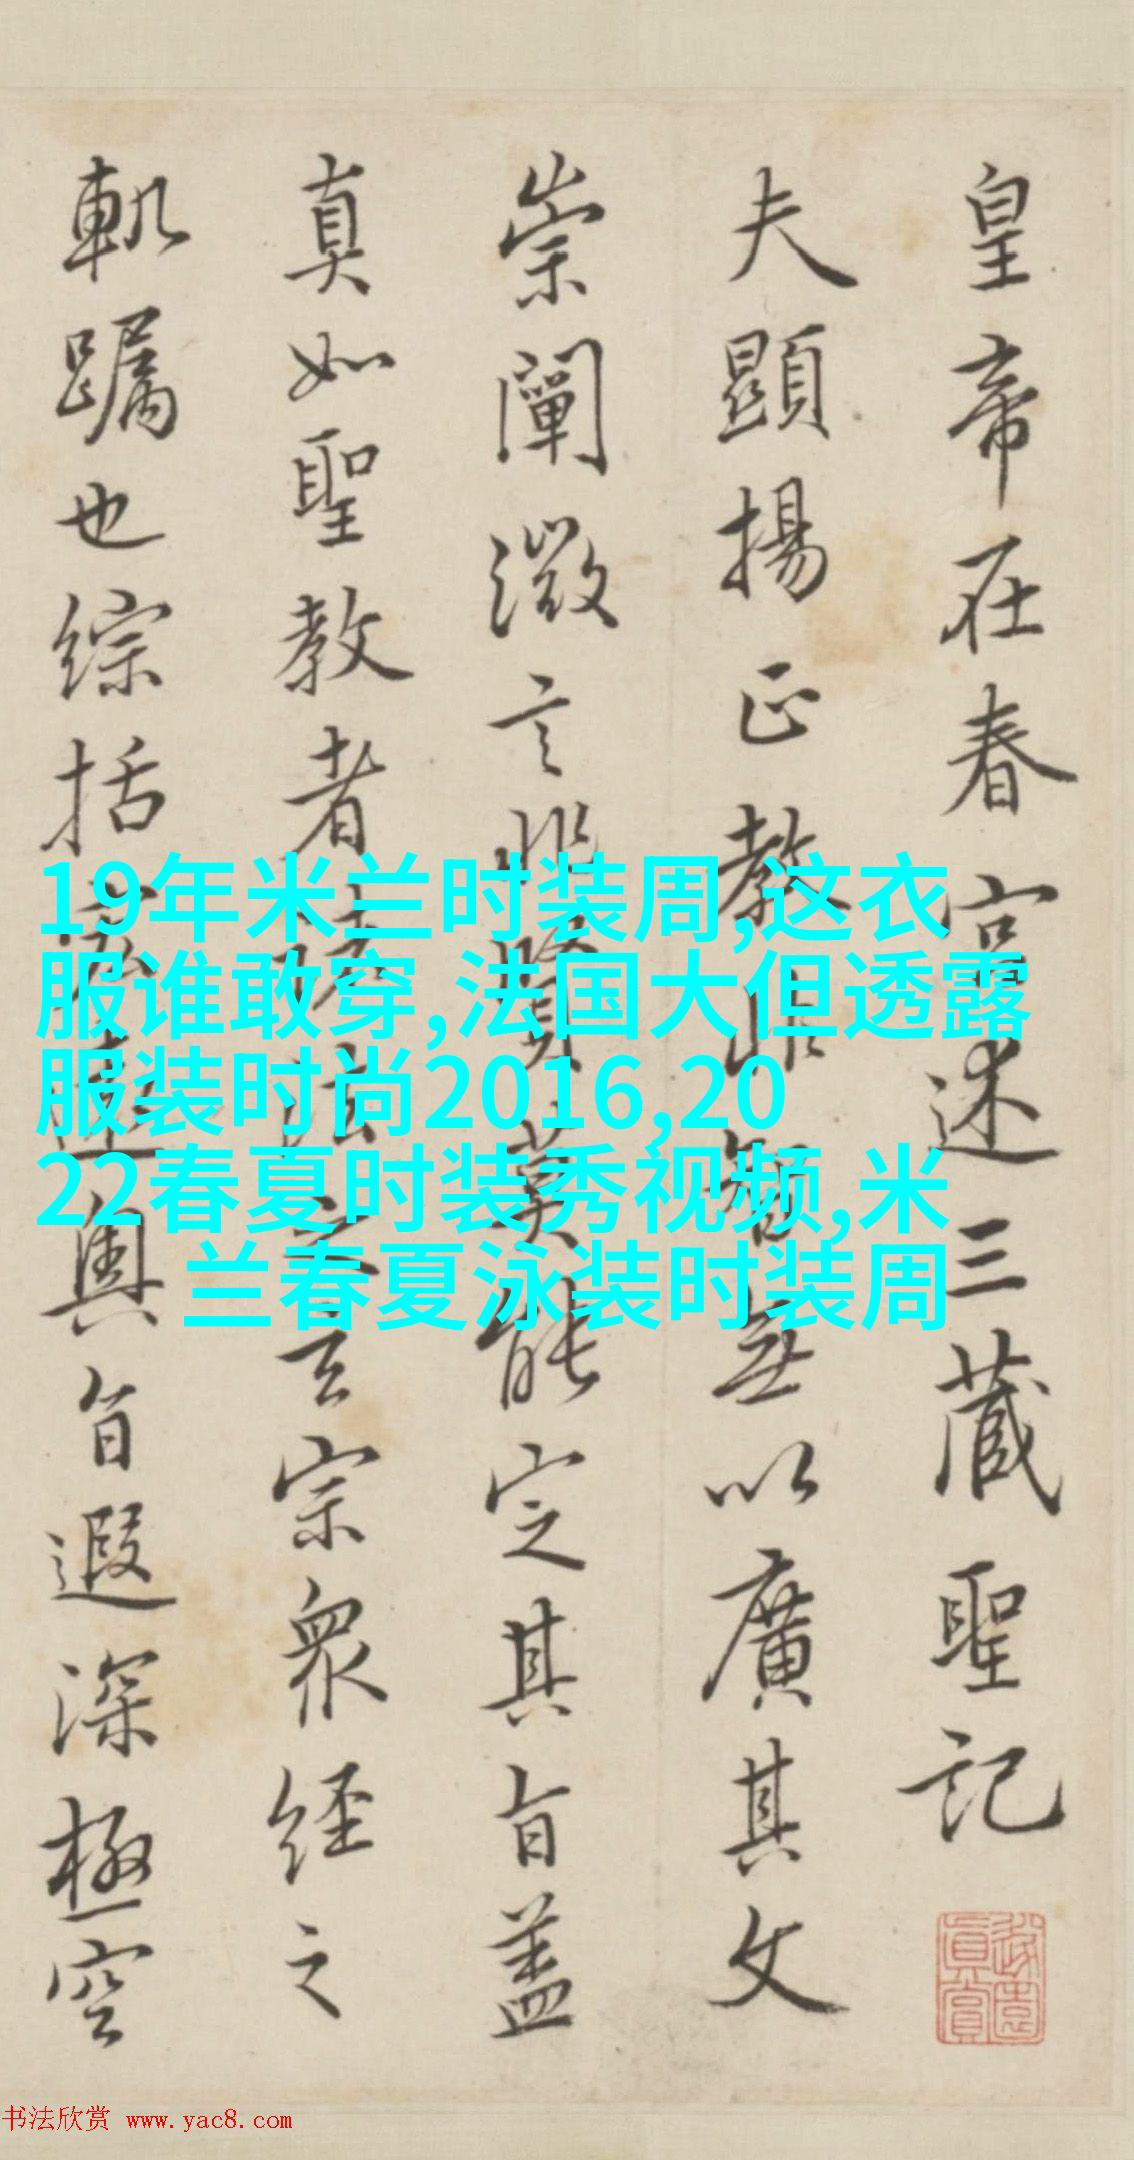 皇帝在春宮述三藏聖記
夫顯揚正教非智無以廣其文
崇闡微言非賢莫能定其旨蓋
真如聖教者諸法之玄宗眾經之
軌躅也綜括宏遠奧旨遐深極空
19年米兰时装周,这衣
服谁敢穿,法国大但透露
服装时尚2016,20
22春夏时装秀视频,米
兰春夏泳装时装周
书法欣赏 www.yac8.com